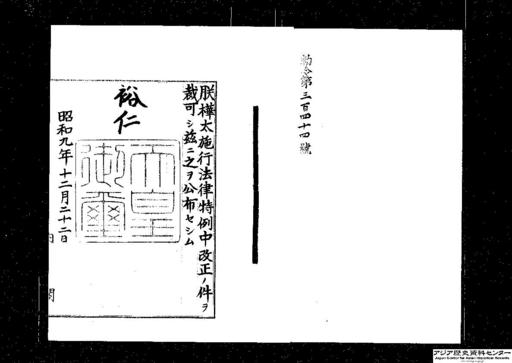 勅令第三百四十四號
朕樺太施行法律特例中改正ノ件ヲ
裁可シ茲ニ之ヲ公布セシム
裕仁
天皇
御璽
昭和九年十二月二十二日
アジア歴史資料センター
Japan Center for Asian Historical Records